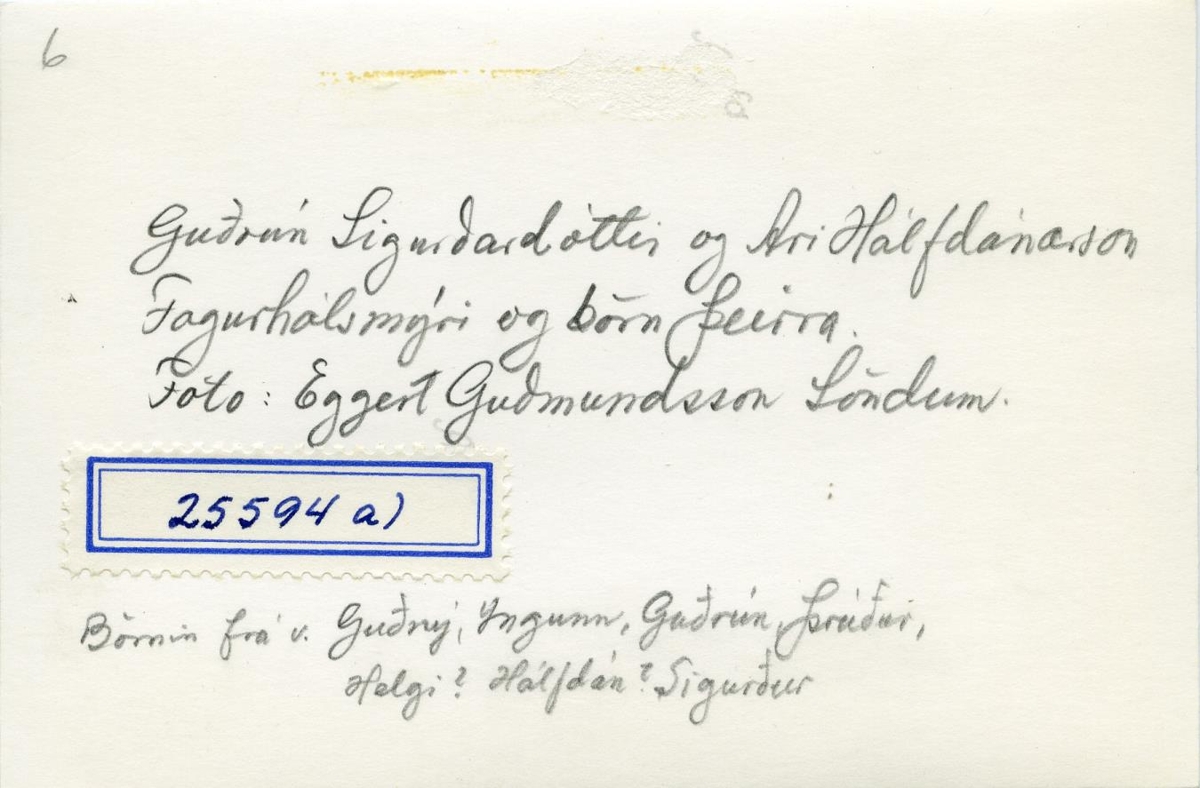 6
Guðrún Sigurðardóttir og Ari Hálfdánarson
Fagurhólsmýri og börn þeirra.
Foto: Eggert Guðmundsson Söndum.
25594 a)
Börnin frá v. Guðný, Ingunn, Guðrún, Þrúður,
Helgi? Hálfdán? Sigurður